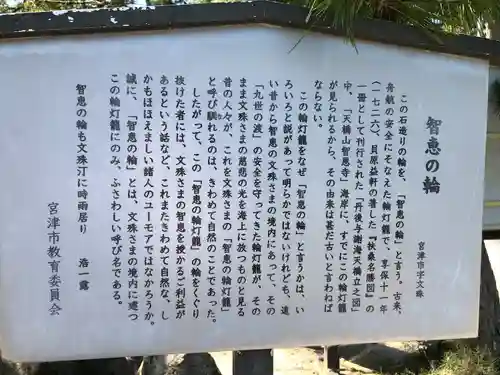 智恵の輪
宮津市字文珠
この石造りの輪を、「智恵の輪」と言う。古来、
舟航の安全にそなえた輪灯籠で、享保十一年
（一七二六）、貝原益軒の著した『扶桑名勝図』の
一冊として刊行された「丹後与謝海天橋立之図」
中、「天橋山智恩寺」海岸に、すでにこの輪灯籠
が見られるから、その由来は甚だ古いと言わねば
ならない。
この輪灯籠をなぜ「智恵の輪」と言うかは、い
ろいろと説があって明らかではないけれども、遠
い昔から智恵の文珠さまの境内にあって、その
「九世の渡」の安全を守ってきた輪灯籠が、その
まま文珠さまの慈悲の光を海上に放つものと見る
昔の人々が、これを文珠さまの「智恵の輪灯籠」
と呼び馴れるのは、きわめて自然のことであった。
したがって、この「智恵の輪灯籠」の輪をくぐり
抜けた者には、文珠さまの智恵を授かるご利益が
あるという話など、これまたきわめて自然な、し
かもほほえましい諸人のユーモアではなかろうか。
誠に、「智恵の輪」とは、文珠さまの境内に建つ
この輪灯籠にのみ、ふさわしい呼び名である。
智恵の輪も文珠汀に時雨居り　浩一露
宮津市教育委員会